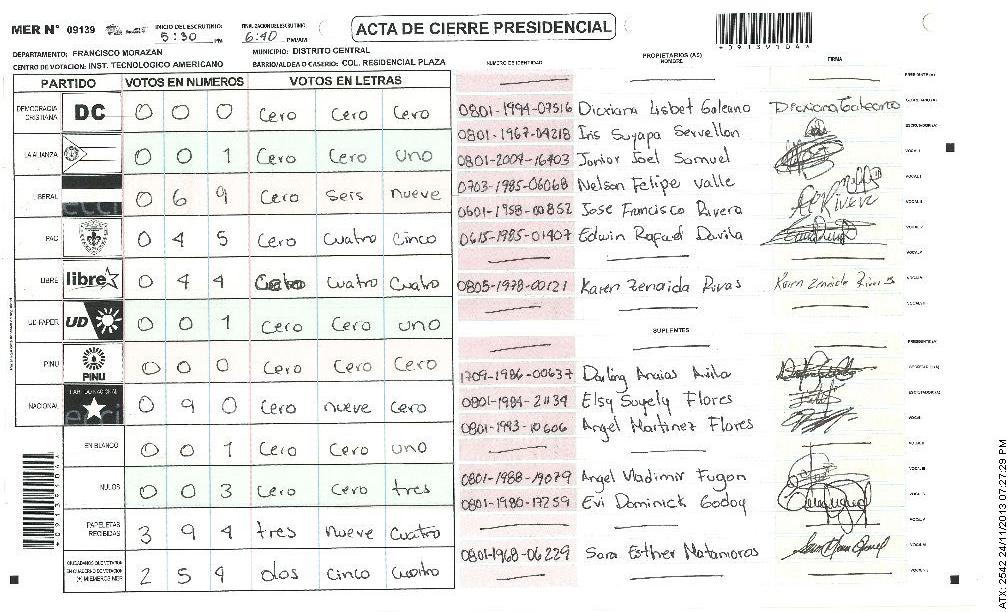 MER N° 09139
INICIO DEL ESCRUTINIO: 5:30 PM
FINALIZACION DEL ESCRUTINIO: 6:40 PM
ACTA DE CIERRE PRESIDENCIAL
DEPARTAMENTO: FRANCISCO MORAZAN
MUNICIPIO: DISTRITO CENTRAL
CENTRO DE VOTACION: INST. TECNOLOGICO AMERICANO
BARRIO/ALDEA O CASERIO: COL. RESIDENCIAL PLAZA
PARTIDO VOTOS EN NUMEROS VOTOS EN LETRAS
DEMOCRACIA CRISTIANA DC 0 0 0 Cero Cero Cero
LA ALIANZA 0 0 1 Cero Cero uno
BERAL 0 6 9 Cero Seis nueve
PAC 0 4 5 Cero Cuatro Cinco
LIBRE libre 0 4 4 Cuatro Cuatro
UD-FAPER UD 0 0 1 Cero Cero uno
PINU PINU 0 0 0 Cero Cero Cero
NACIONAL PARTIDO NACIONAL 0 9 0 Cero nueve Cero
EN BLANCO 0 0 1 Cero Cero uno
NULOS 0 0 3 Cero Cero tres
PAPELETAS RECIBIDAS 3 9 4 tres nueve Cuatro
CIUDADANOS QUE VOTARON EN CUADERNO DE VOTACION (+) MIEMBROS MER 2 5 4 dos Cinco Cuatro
NUMERO DE IDENTIDAD
PROPIETARIOS (AS)
NOMBRE
FIRMA
0801-1994-07516 Dicxiana Lisbet Galeano
0801-1967-04218 Iris Suyapa Servellon
0801-2004-16403 Junior Joel Samuel
0703-1985-06068 Nelson Felipe Valle
0601-1958-00852 Jose Francisco Rivera
0615-1985-01407 Edwin Rafael Davila
0805-1978-00121 Karen Zenaida Rivas
SUPLENTES
1709-1986-00637 Darling Avila
0801-1984-21134 Elsy Suyely Flores
0801-1993-10606 Angel Martinez Flores
0801-1988-19079 Angel Vladimir Fugon
0801-1980-17259 Evi Dominick Godoy
0801-1968-06229 Sara Esther Matamoros
ATX: 2542 24/11/2013 07:27:29 PM